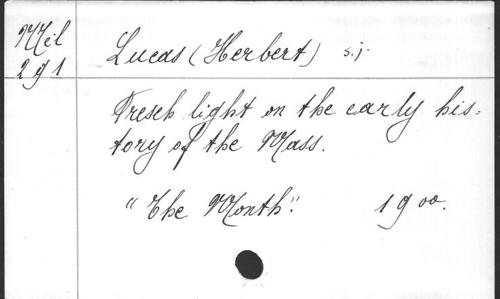 Mil
291
Lucas (Herbert) s.j.
Fresch light on the early his=
tory of the Mass.
"The Month". 1900.